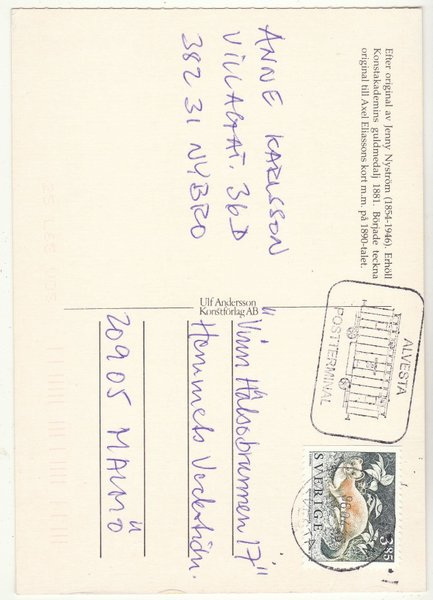 Efter original av Jenny Nyström (1854-1946). Erhöll
Konstakademins guldmedalj 1881. Började teckna
original till Axel Eliassons kort m.m. på 1890-talet.
ANNE KARLSSON
VILLAGAT. 36D
382 31 NYBRO
Ulf Andersson
Konstförlag AB
ALVESTA
POSTTERMINAL
SVERIGE
3.85
"Vinn Hälsobrunnen 17"
Hemmets Veckotidn.
209 05 MALMÖ